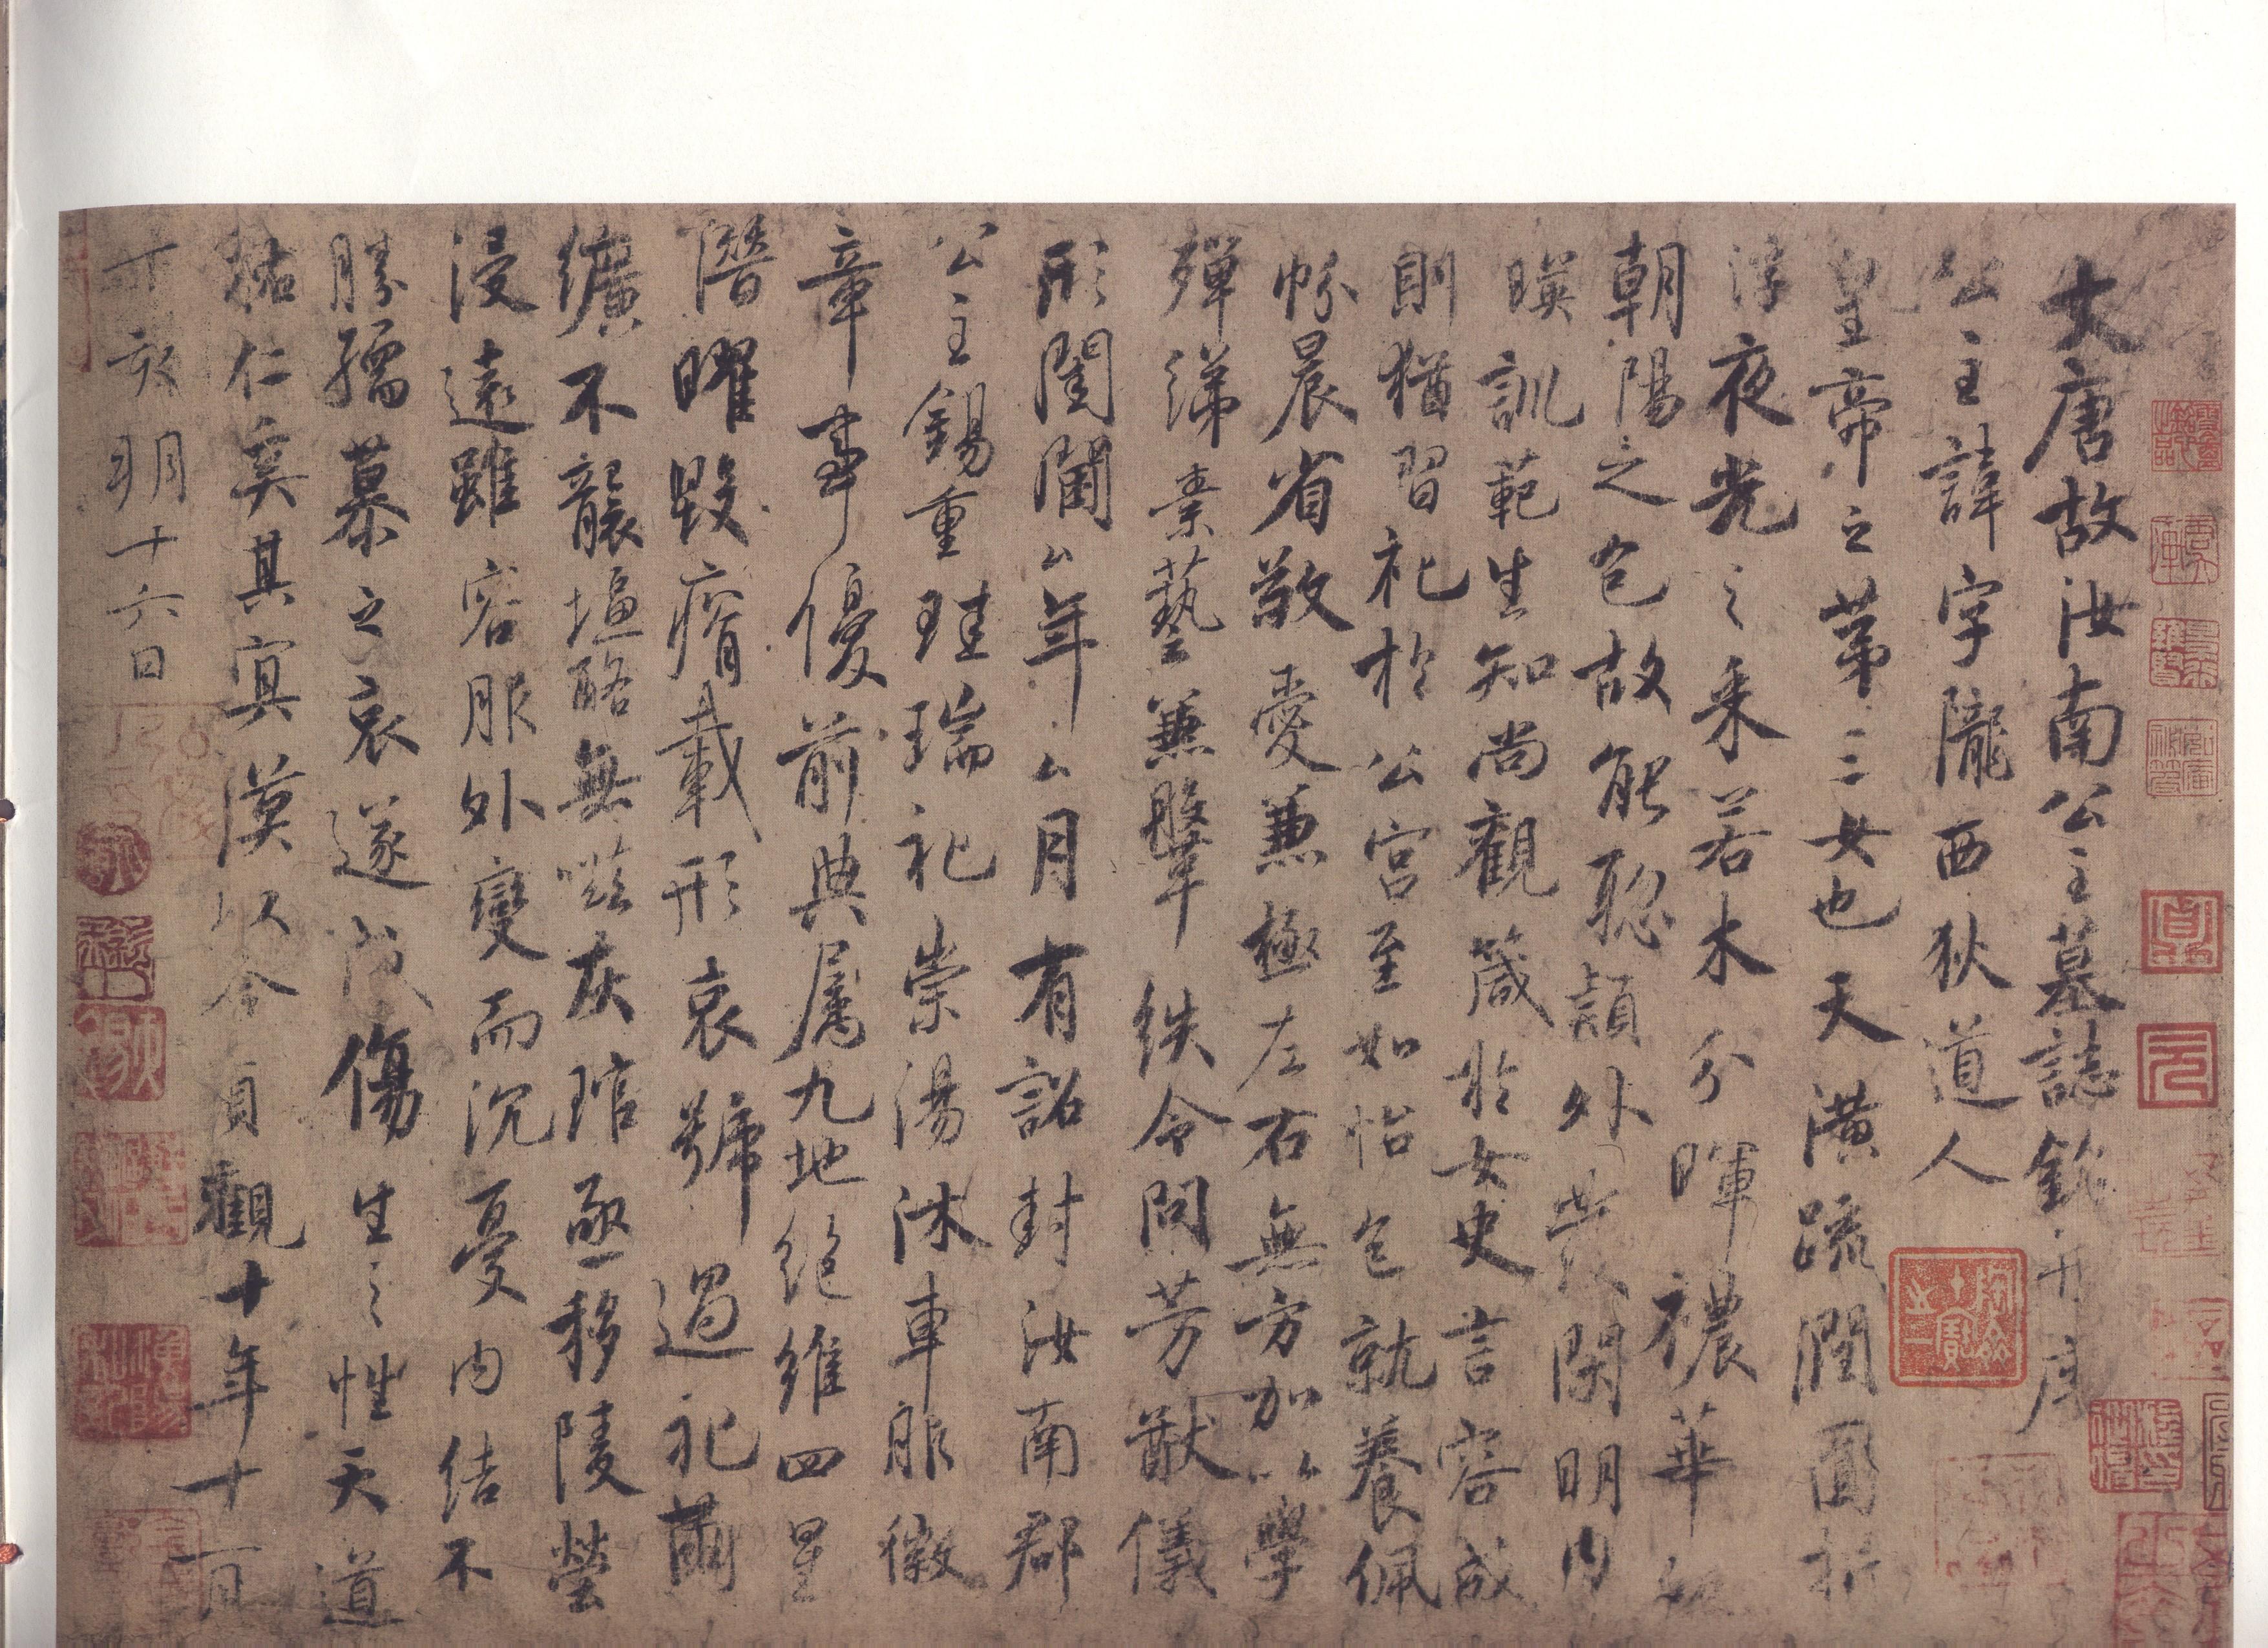 大唐故汝南公主墓誌銘并序
公主諱字隴西狄道人
皇帝之第三女也天潢疏潤圓折
浮夜光之采若木分暉穠華如
朝陽之色故能聡頴外發閑明内
暎訓範生知尚觀箴於女史言容成
則猶習礼於公宮至如怡色就養佩
帉晨省敬愛兼極左右無方加以學
殫綈素藝兼鞶紩令問芳猷儀
形閨閫厶年厶月有詔封汝南郡
公主錫重珪瑞礼崇湯沐車服徽
章事優前典属九地絶維四星
潛曜毀瘠載形哀號過礼繭
纊不襲塩酪無嗞灰琯亟移陵塋
浸遠雖容服外變而沉憂内結不
勝孺慕之哀遂成傷生之性天道
祐仁奚其冥漠以今貞觀十年十一月
丁亥朔十六日